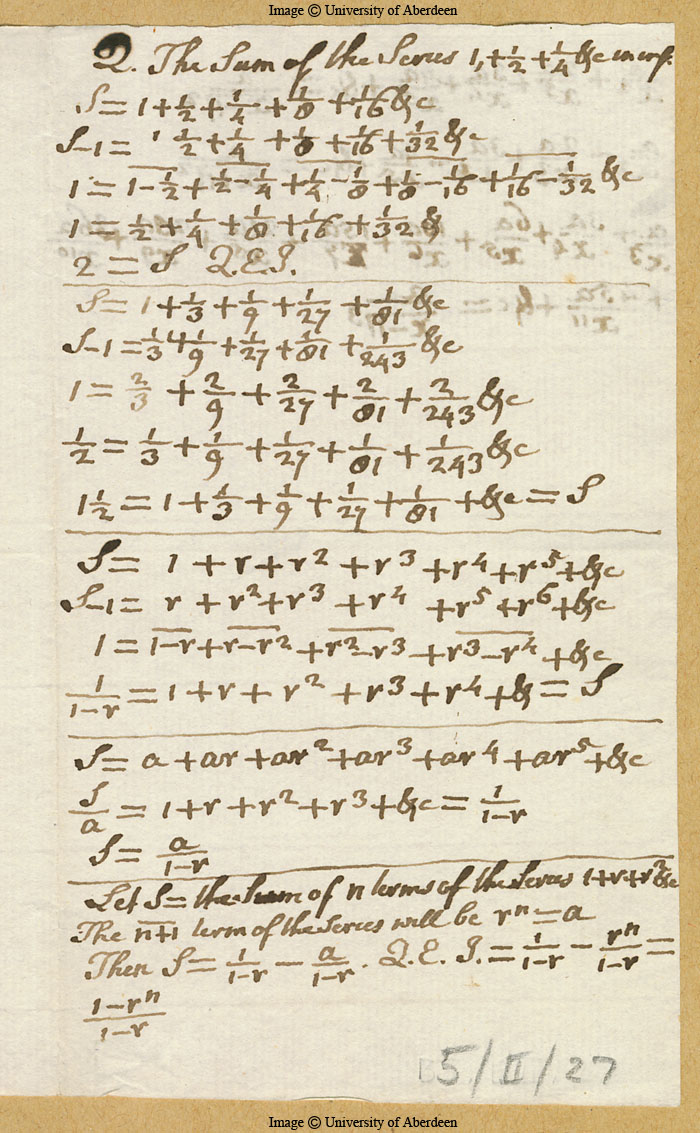 Image © University of Aberdeen
Q. The Sum of the Series 1,+1/2+1/4 &c in inf.
S=1+1/2+1/4+1/8+1/16 &c
S-1= 1/2+1/4+1/8+1/16+1/32 &c
1=1-1/2+1/2-1/4+1/4-1/8+1/8-1/16+1/16-1/32 &c
1=1/2+1/4+1/8+1/16+1/32 &
2=S Q.E.I.
S=1+1/3+1/9+1/27+1/81 &c
S-1=1/3+1/9+1/27+1/81+1/243 &c
1=2/3+2/9+2/27+2/81+2/243 &c
1/2=1/3+1/9+1/27+1/81+1/243 &c
1 1/2=1+1/3+1/9+1/27+1/81+&c=S
S=1+r+r²+r³+r⁴+r⁵+&c
S-1=r+r²+r³+r⁴+r⁵+r⁶+&c
1=1-r+r-r²+r²-r³+r³-r⁴+&c
1/1-r=1+r+r²+r³+r⁴+&=S
S=a+ar+ar²+ar³+ar⁴+ar⁵+&c
S/a=1+r+r²+r³+&c=1/1-r
S=a/1-r
Let S=the Sum of n terms of the Series 1+r+r² &c
The n+1 term of the Series will be rⁿ=a
Then S=1/1-r-a/1-r. Q.E.I.=1/1-r-rⁿ/1-r=
1-rⁿ/1-r
5/II/27
Image © University of Aberdeen